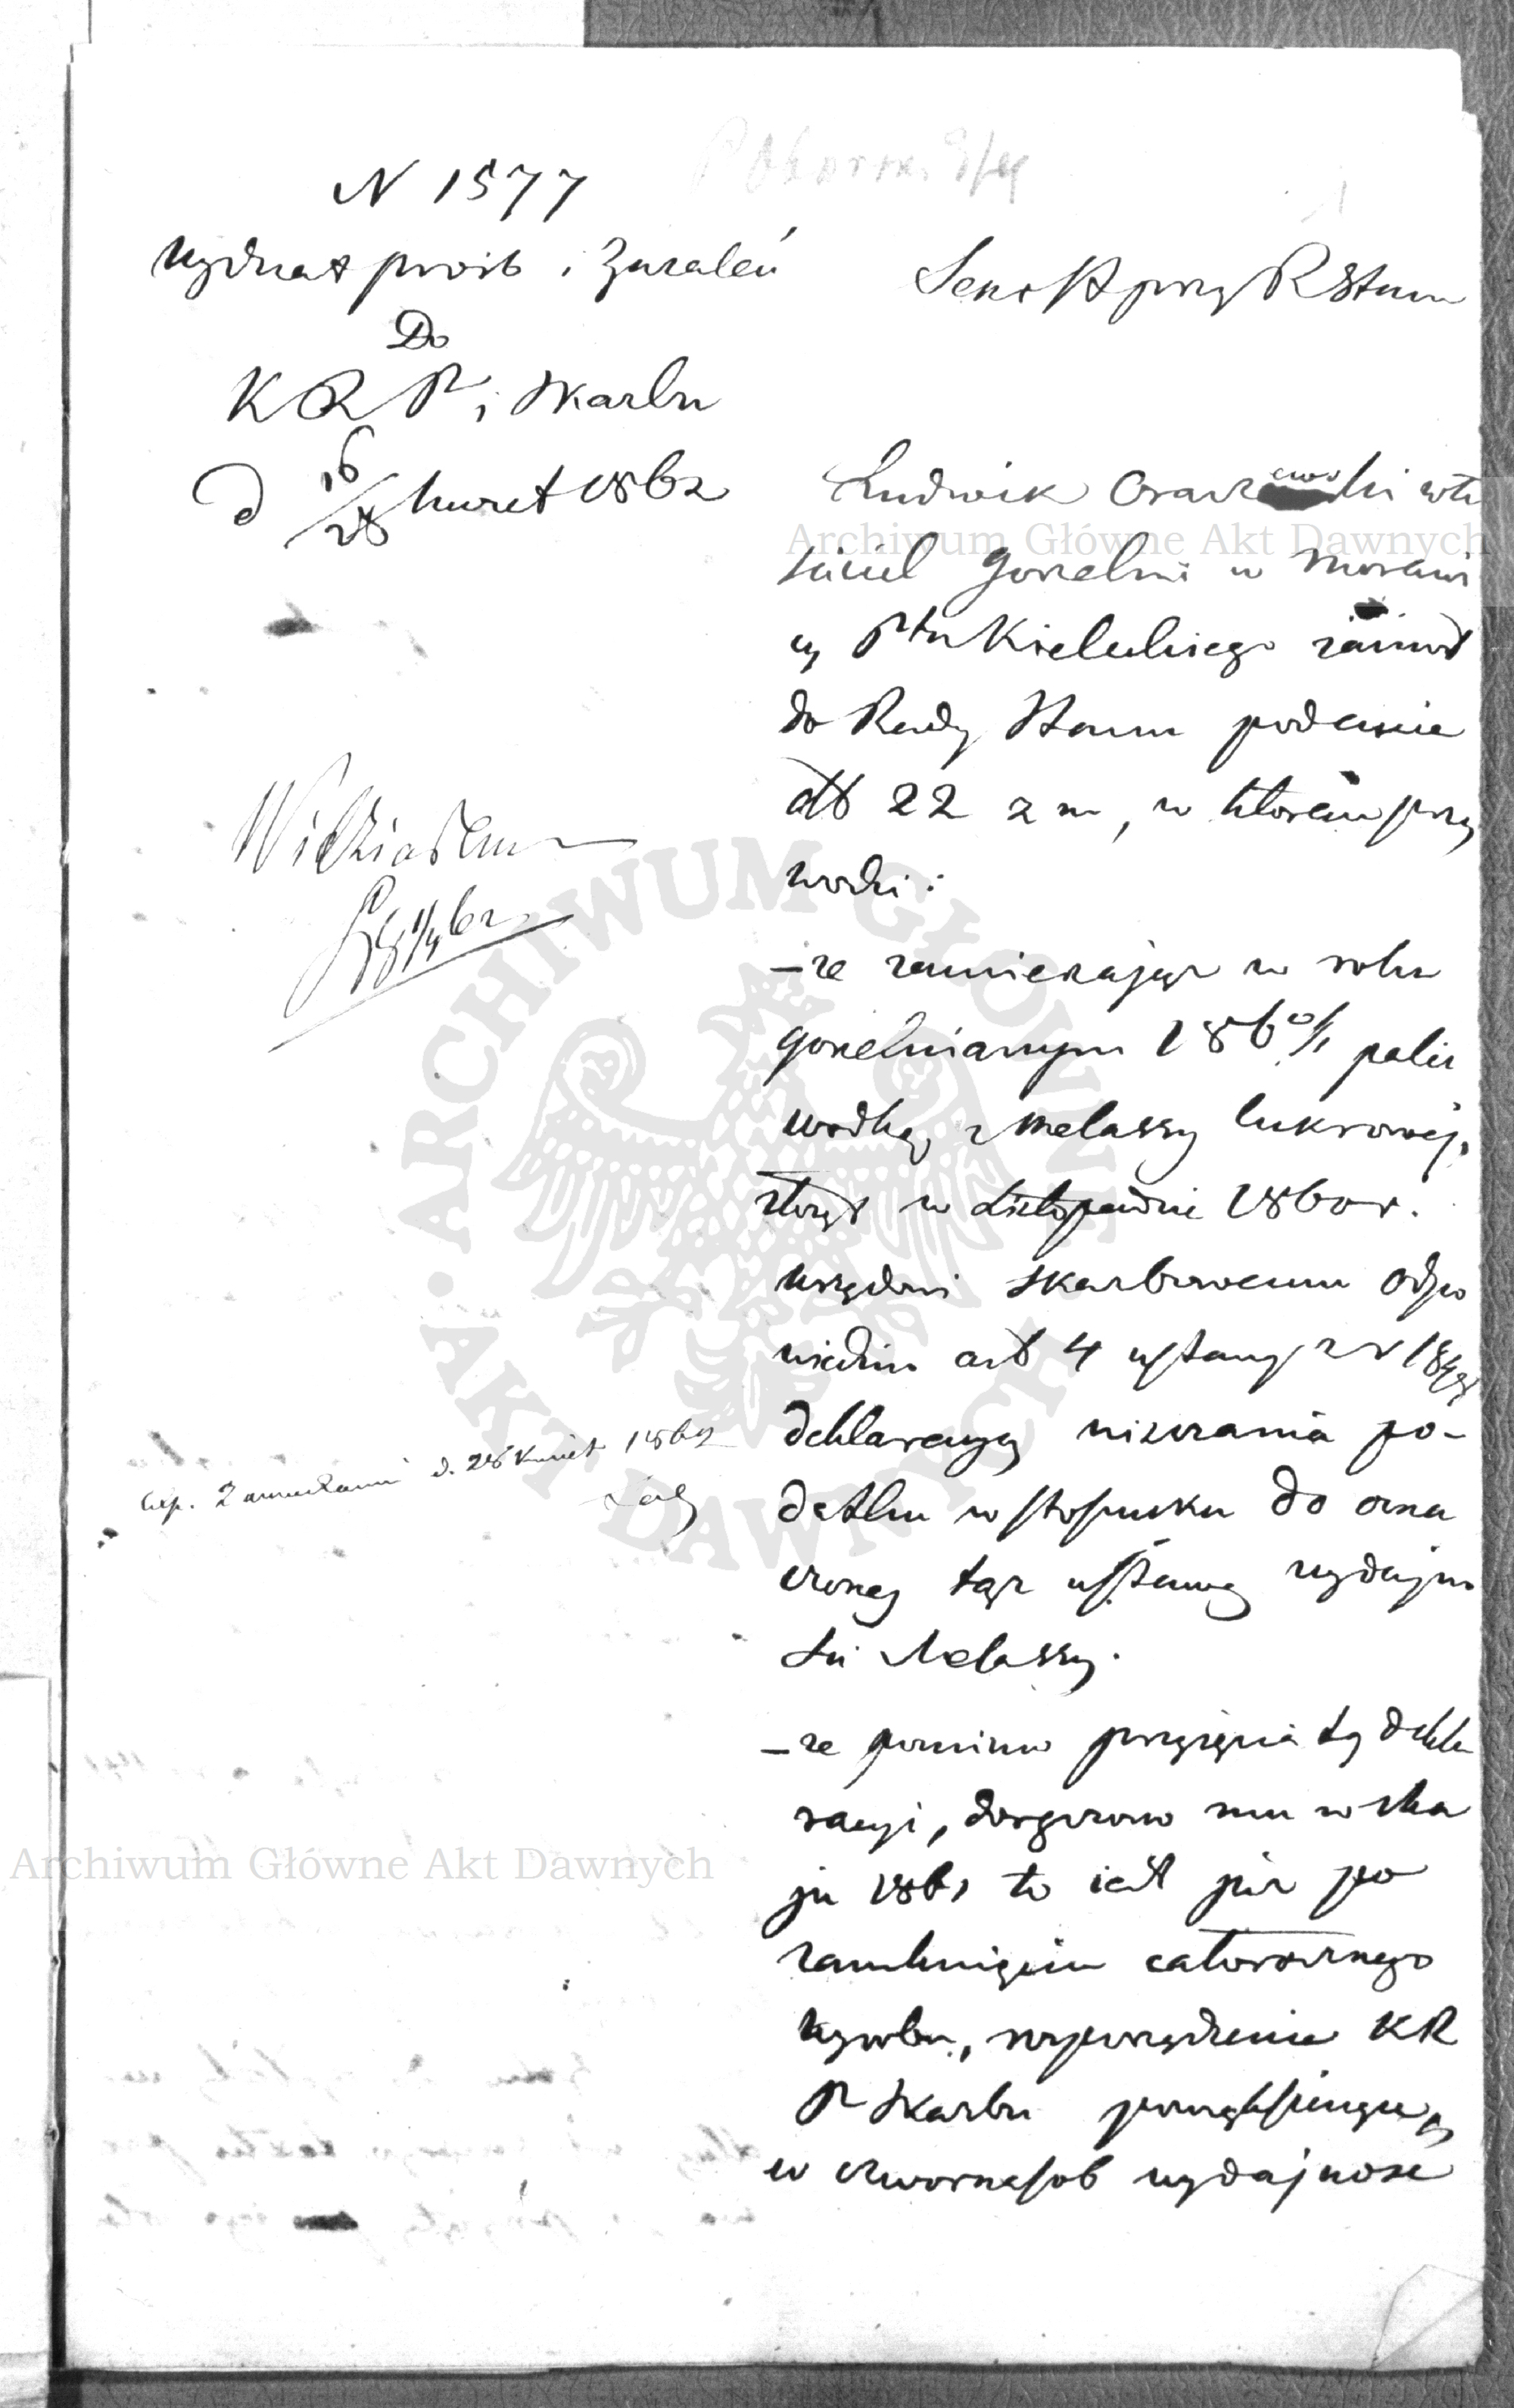 N 1577
Wydział prośb i Zażaleń
Do
K R P i Skarbu
d 16/28 kwiet 1862
Widziałem
1/4 62
Exp. Z annexami d. 28 kwiet 1862
Sekr St przy R Stanu
Ludwik Oraczewski wła
ściciel gorzelni w Morawi
cy Ptu Kieleckiego zaniósł
do Rady Stanu podanie
dtt 22 z m, w którem przy
wodzi:
– że zamierzając w roku
gorzelnianym 1860/1 palić
wódkę z melassy cukrowej,
złożył w Listopadzie 1860 r.
urzędowi skarbowemu odpo
wiednio art 4 ustawy z r 1848
deklaracyą uiszczania po-
datku w stosunku do ozna
czonej tąż ustawą wydajno
ści Melassy.
– że pomimo przyjęcia tej dekla
racyi, doręczono mu w Ma
ju 1861 to jest już po
zamknięciu całorocznego
wyrobu, rozporządzenie KR
P Skarbu powiększające
w czwórnasób wydajność
Archiwum Główne Akt Dawnych
Archiwum Główne Akt Dawnych
ARCHIWUM GŁÓWNE AKT DAWNYCH